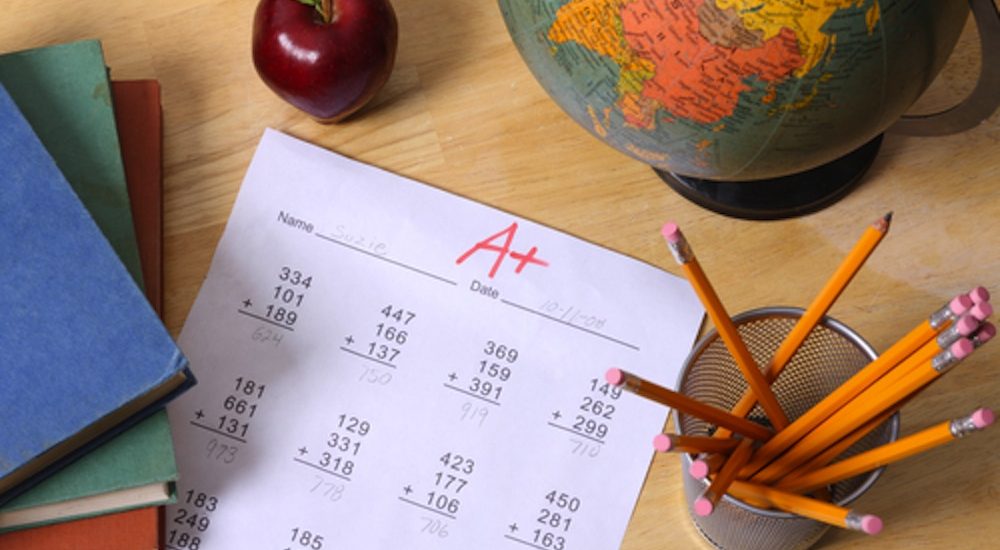 A+
Name Suzie
Date
334
101
+ 189
624
447
166
+ 137
750
369
159
+ 391
919
149
262
+ 299
710
181
661
+ 131
973
129
331
+ 318
778
423
177
+ 106
706
450
281
+ 163
183
249
188
185